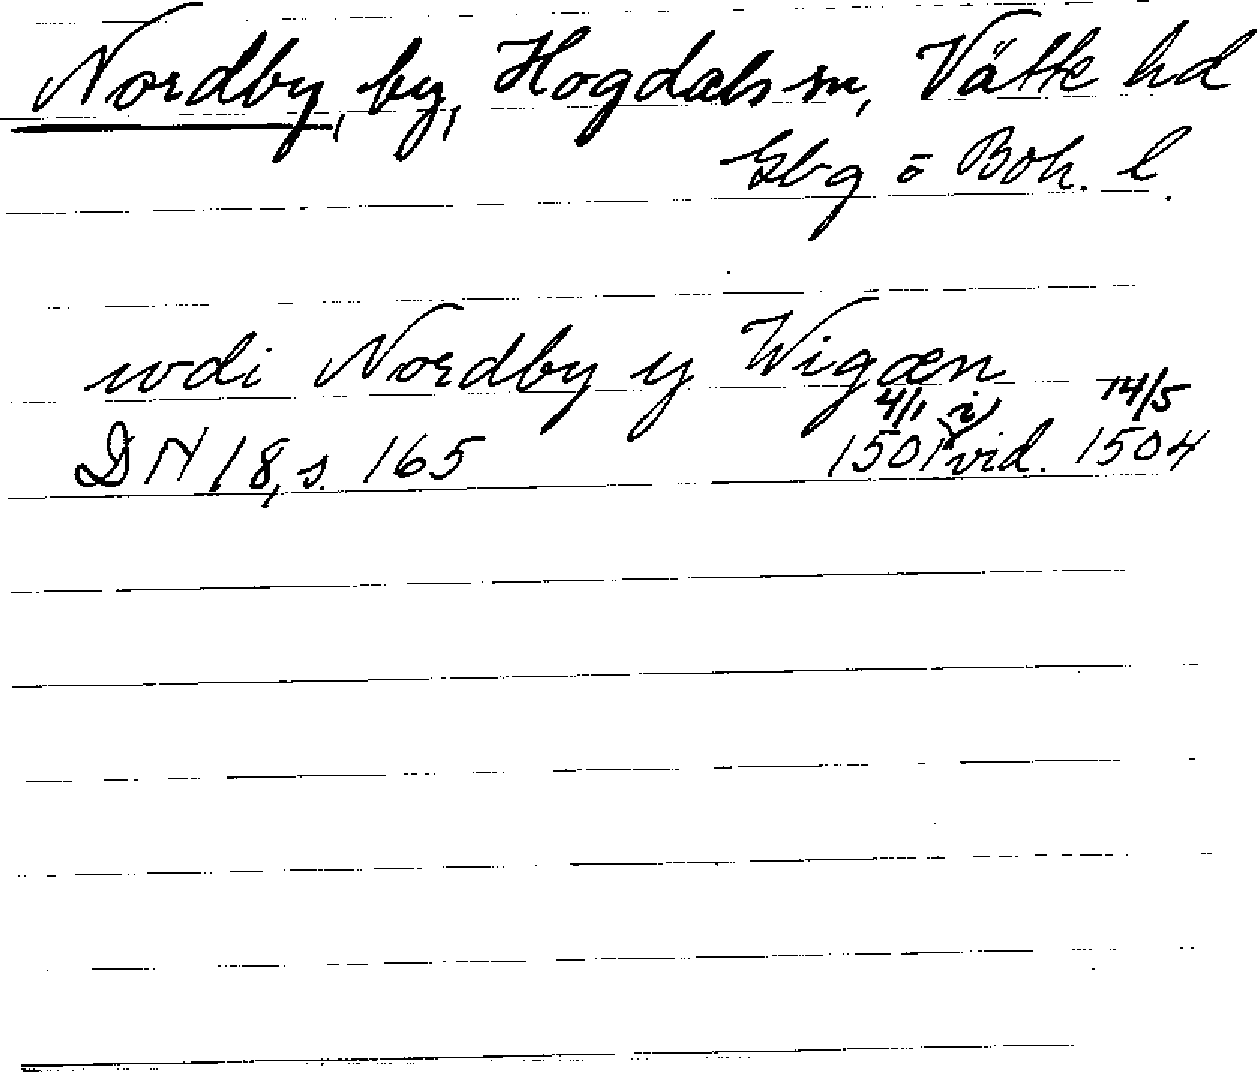 Nordby, by, Hogdals sn, Vätte hd
Gbg o Boh. l.
wdi Nordby y Wigæn
4/1 i 14/5
DN 18, s. 165 1501 vid. 1504